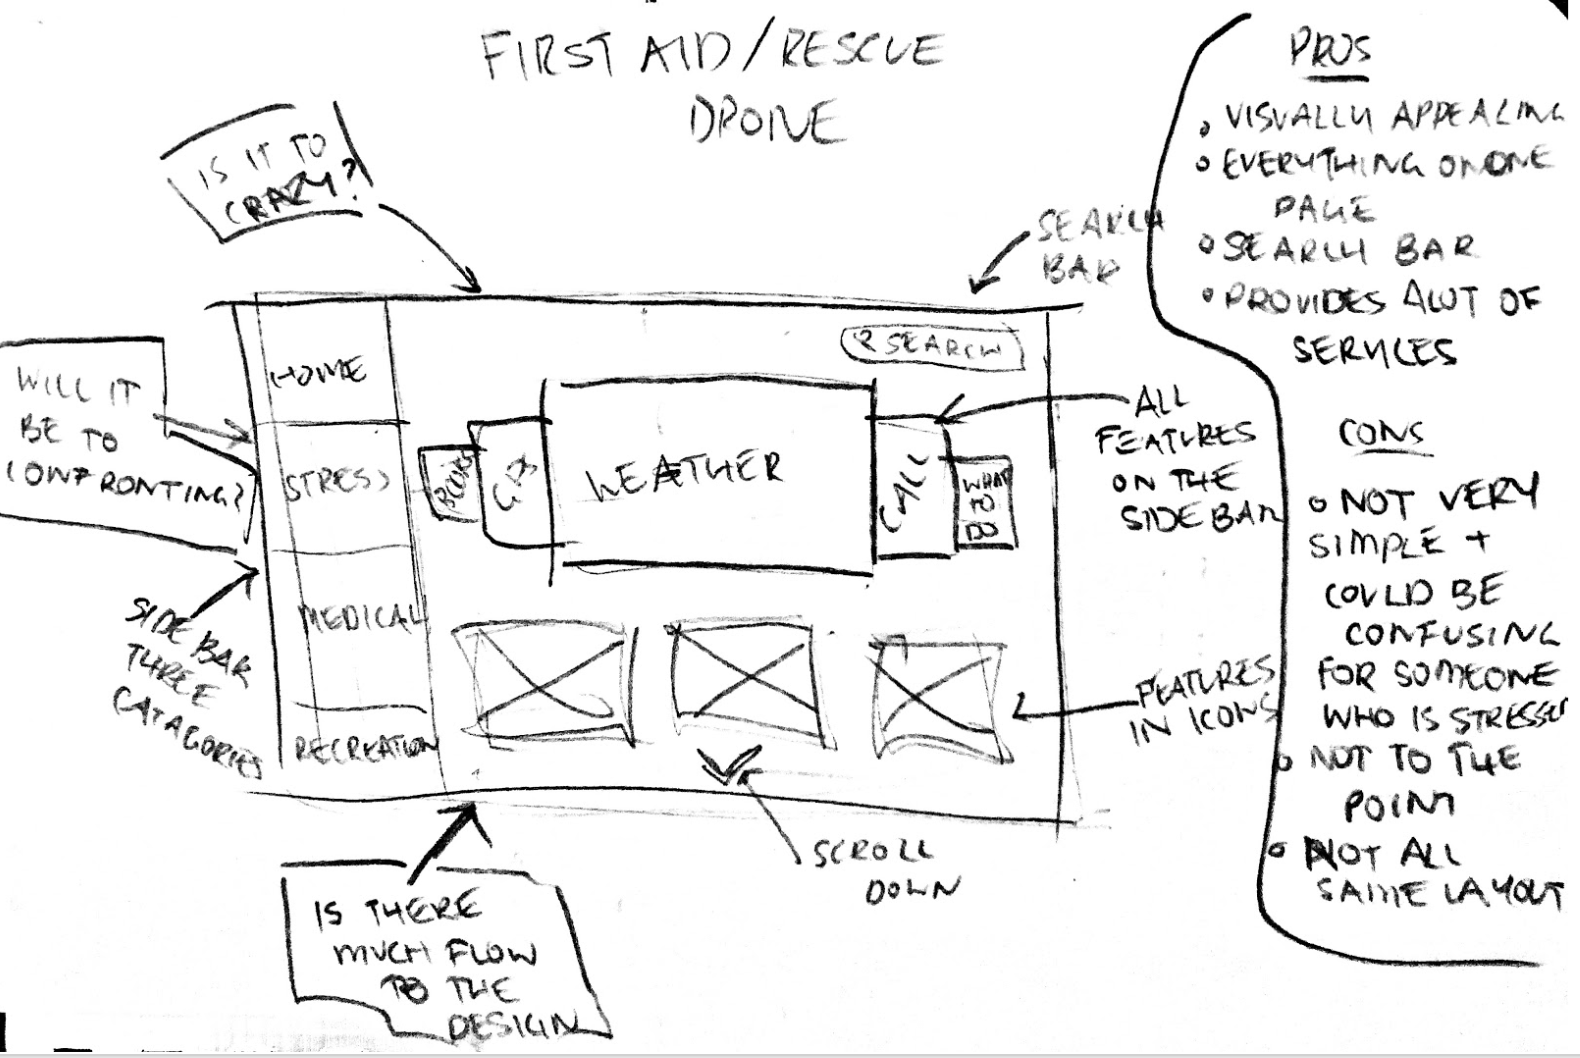 FIRST AID/RESCUE
DRONE
IS IT TO
CRAZY?
SEARCH
BAR
WILL IT
BE TO
CONFRONTING?
SIDE BAR
THREE
CATAGORIES
HOME
STRESS
MEDICAL
RECREATION
SEARCH
WEATHER
CALL
WHAT
TO
DO
ALL
FEATURES
ON THE
SIDE BAR
FEATURES
IN ICONS
SCROLL
DOWN
IS THERE
MUCH FLOW
TO THE
DESIGN
PROS
VISUALLY APPEALING
EVERYTHING ON ONE
PAGE
SEARCH BAR
PROVIDES ALOT OF
SERVICES
CONS
NOT VERY
SIMPLE +
COULD BE
CONFUSING
FOR SOMEONE
WHO IS STRESSED
NOT TO THE
POINT
NOT ALL
SAME LAYOUT